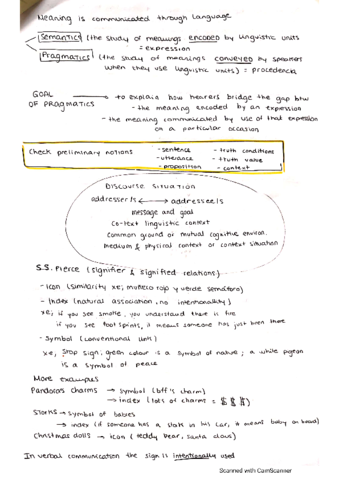 Meaning is communicated through language
Semantics (the study of meanings encoded by linguistic units
= expression
Pragmatics (the study of meanings conveyed by speakers
when they use linguistic units) =
GOAL OF PRAGMATICS → to explain how hearers bridge the gap btw
- the meaning encoded by an expression
- the meaning communicated by use of that expression
on a particular occasion
Check preliminary notions
- sentence - truth conditions
- utterance - truth value
- proposition - context
DISCOURSE SITUATION
addresser/s ↔ addressee/s
message and goal
Co-text linguistic context
Common ground or mutual cognitive environ.
Medium & physical context or context situation
S.S. Pierce (signifier & signified relations).
- Icon (similarity xe; muñeco rojo y verde semáforo)
- Index (natural association, no intentionality)
xe; if you see smoke, you understand there is fire
if you see foot prints, it means someone has just been there
- Symbol (conventional link)
xe; stop sign; green colour is a symbol of nature; a white pigeon
is a symbol of peace
More examples
Pandora's charms → symbol (bff's charm)
→ index (lots of charms = $ $ $)
Storks → symbol of babies
→ index (if someone has a stork in his car, it means baby on board)
Christmas dolls → icon (teddy bear, santa claus)
In verbal communication the sign is intentionally used
Scanned with CamScanner